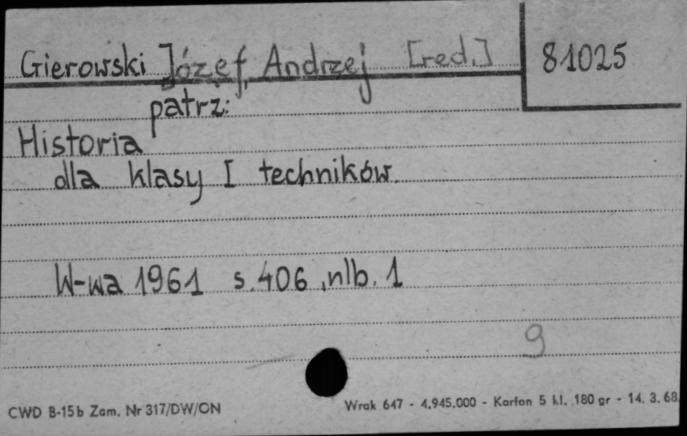 Gierowski Józef Andrzej [red.] 81025
patrz:
Historia
dla klasy I techników.
W-wa 1961 s. 406, nlb. 1
9
CWD B-15b Zam. Nr 317/DW/ON Wrak 647 - 4.945.000 - Karton 5 kl. 180 gr - 14. 3. 68